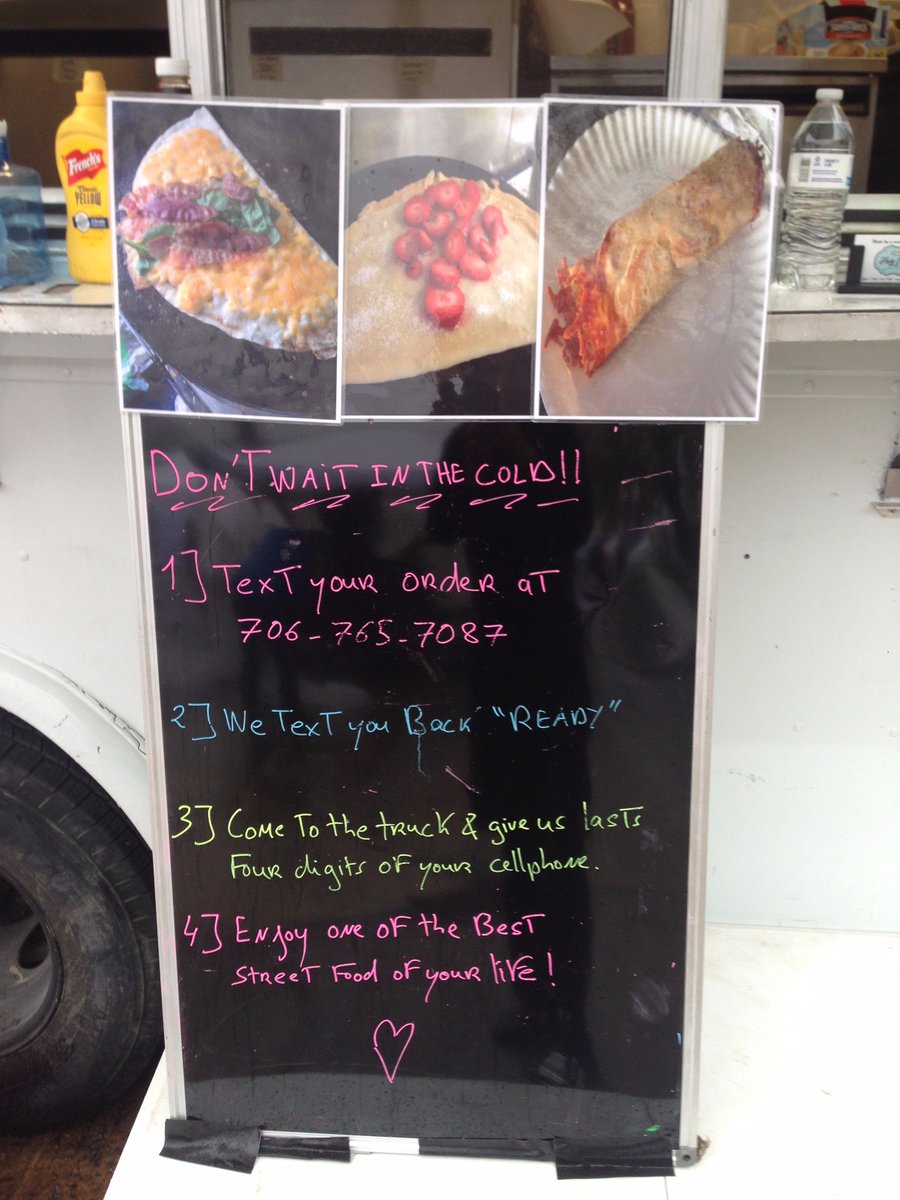 French's
Classic
YELLOW
DON'T WAIT IN THE COLD!!
1] TEXT your order at
706-765-7087
2] We TexT you Back "READY"
3] Come To the truck & give us lasts
Four digits of your cellphone.
4] Enjoy one of the Best
Street Food of your life!